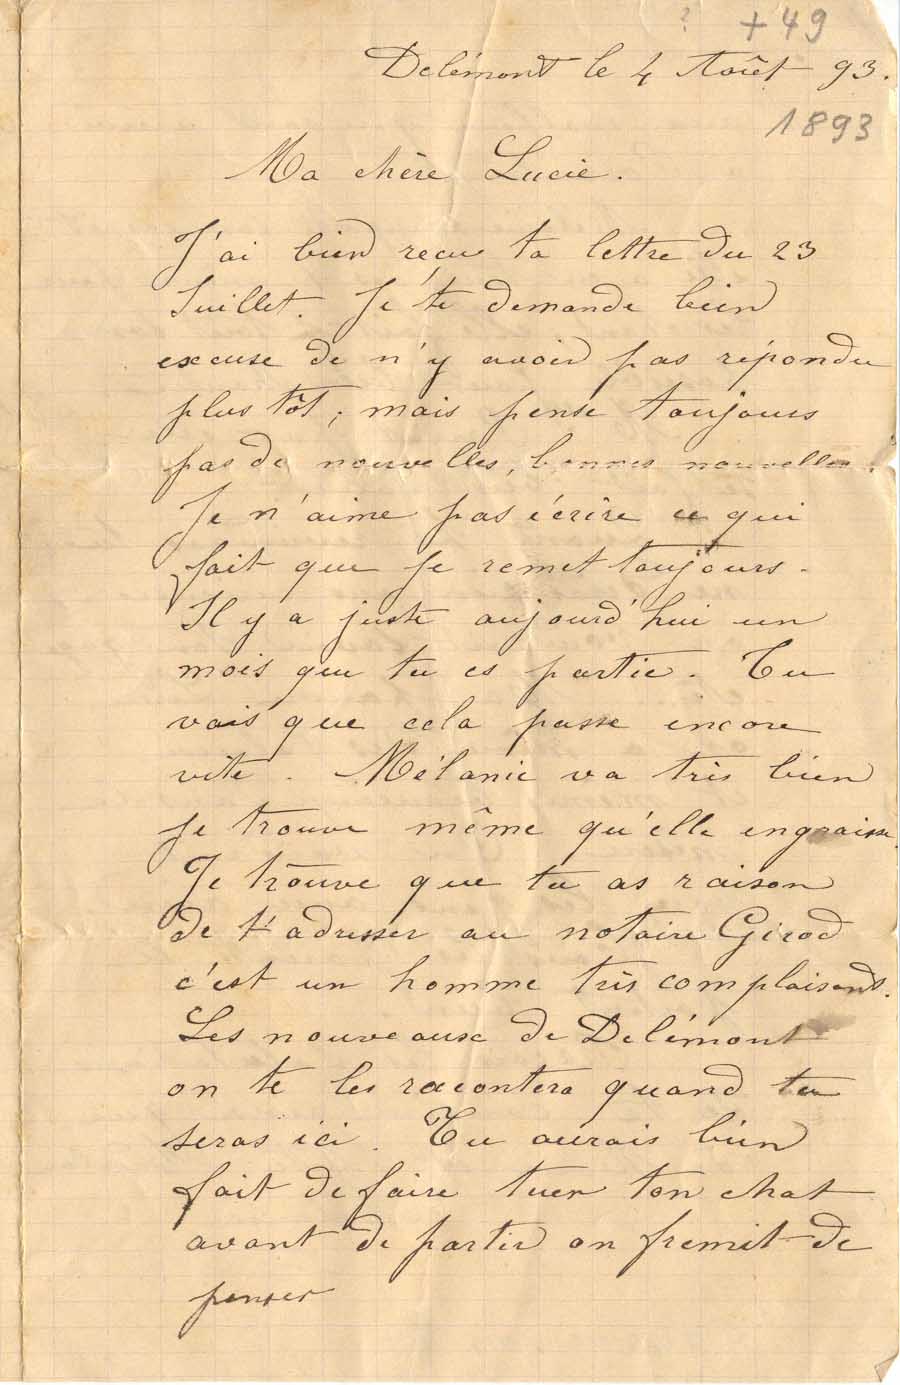 ? + 49
Delémont le 4 Août 93.
1893
Ma chère Lucie.
J'ai bien reçu ta lettre du 23
Juillet. Je te demande bien
excuse de n'y avoir pas répondu
plus tôt ; mais pense toujours
pas de nouvelles, bonnes nouvelles.
Je n'aime pas écrire ce qui
fait que je remet toujours.
Il y a juste aujourd'hui un
mois que tu es partie. Tu
vois que cela passe encore
vite. Mélanie va très bien
je trouve même qu'elle engraisse.
Je trouve que tu as raison
de t'adresser au notaire Girod
c'est un homme très complaisant.
Les nouveaux de Delémont
on te les racontera quand tu
seras ici. Tu aurais bien
fait de faire tuer ton chat
avant de partir on fremit de
penser